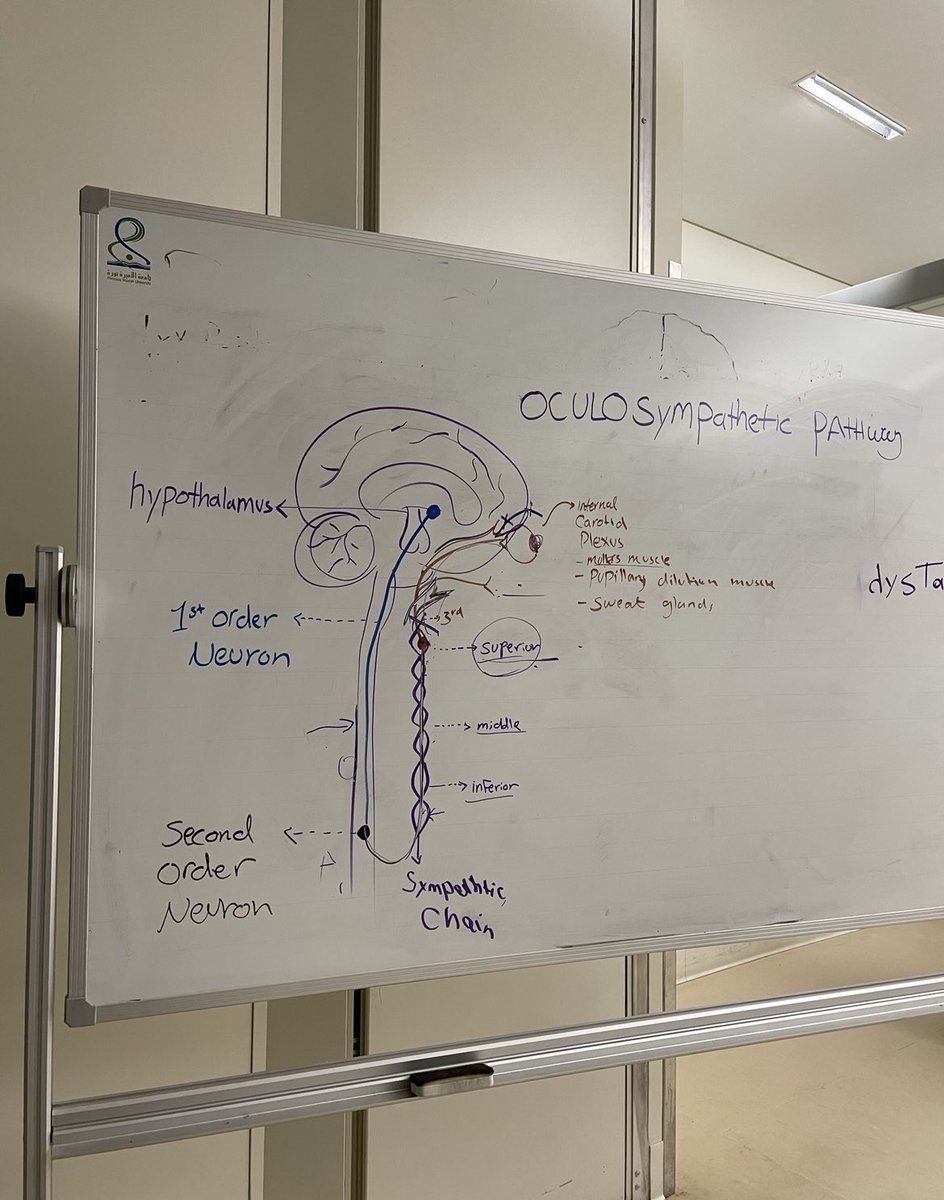 جامعة الأميرة نورة
OCULOSympathetic PAthway
hypothalamus
internal
Carotid
Plexus
- mullers muscle
- Pupillary dilution muscle
- Sweat glands
dysTa
3rd
1st order
Neuron
superior
middle
inferior
Second
order
Neuron
Sympathtic
Chain